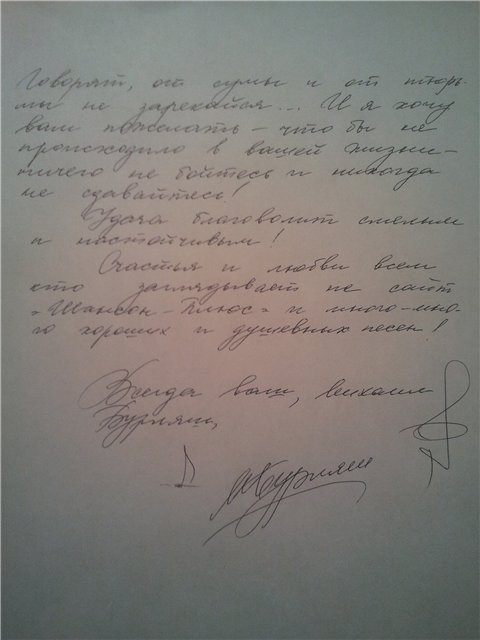 Говорят, от сумы и от тюрь-
мы не зарекайся... И я хочу
вам пожелать – что бы не
происходило в вашей жизни –
ничего не бойтесь и никогда
не сдавайтесь!
Удача благоволит смелым
и настойчивым!
Счастья и любви всем
кто заглядывает на сайт
"Шансон-Плюс" и много-мно-
го хороших и душевных песен!
Всегда ваш, Михаил
Бурляш,
МБурляш